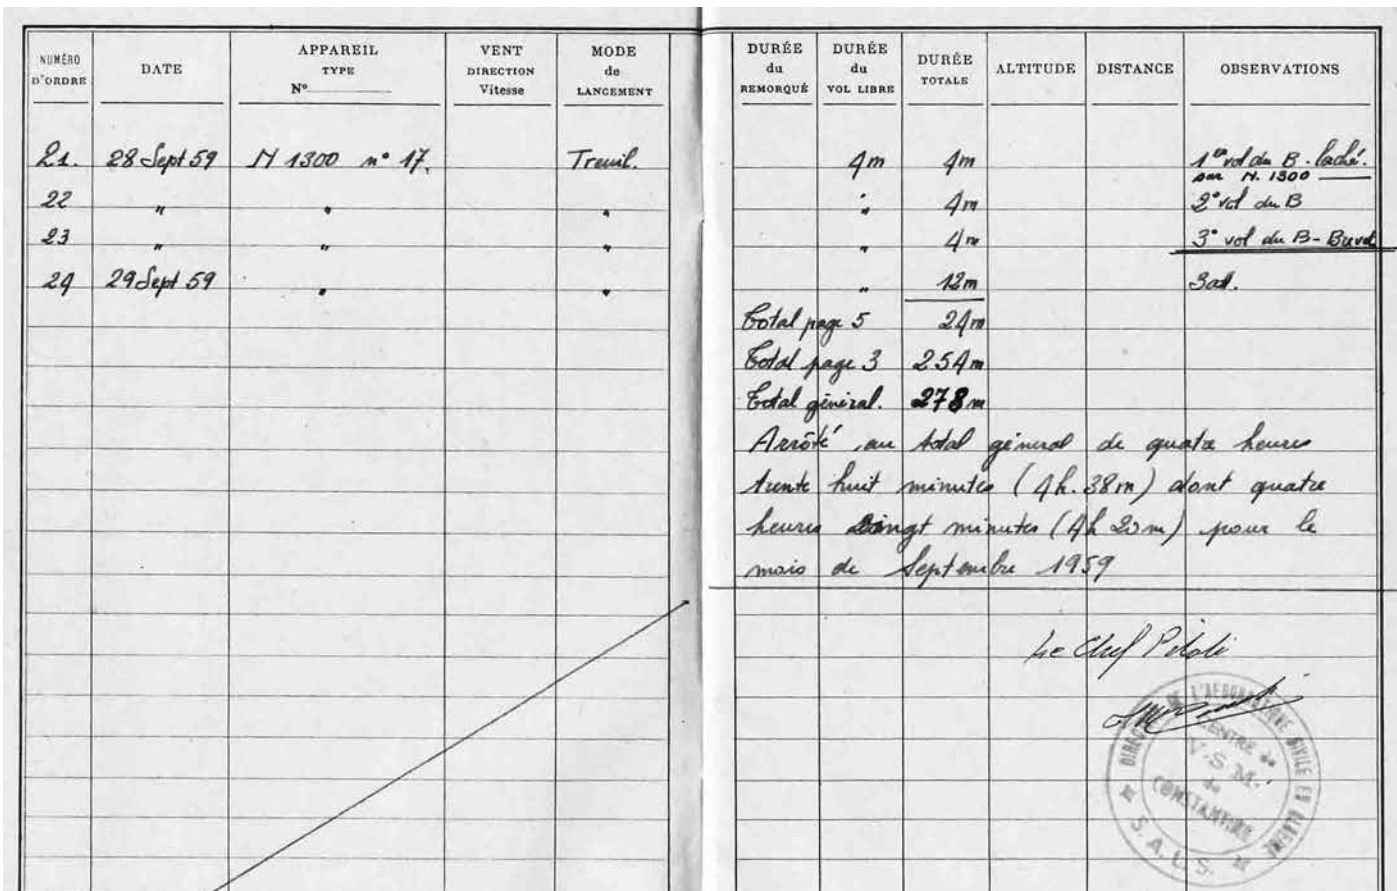 NUMÉRO D'ORDRE
DATE
APPAREIL TYPE N°
VENT DIRECTION Vitesse
MODE de LANCEMENT
DURÉE du REMORQUÉ
DURÉE du VOL LIBRE
DURÉE TOTALE
ALTITUDE
DISTANCE
OBSERVATIONS
21. 28 Sept 59 N 1300 n° 17. Treuil. 4m 4m 1er vol du B. laché.
sur N. 1300
22 " " " " 4m 2° vol du B
23 " " " " 4m 3° vol du B - Brevet
24 29 Sept 59 " " " 12m
Total page 5 24m
Total page 3 254m
Total général. 278m
Arrêté au total général de quatre heures
trente huit minutes (4h.38m) dont quatre
heures vingt minutes (4h 20m) pour le
mois de Septembre 1959
Le Chef Pilote
DE L'AERONAUTIQUE CIVILE EN ALGERIE
CENTRE de
V.S.M.
de
CONSTANTINE
S.A.L.S.